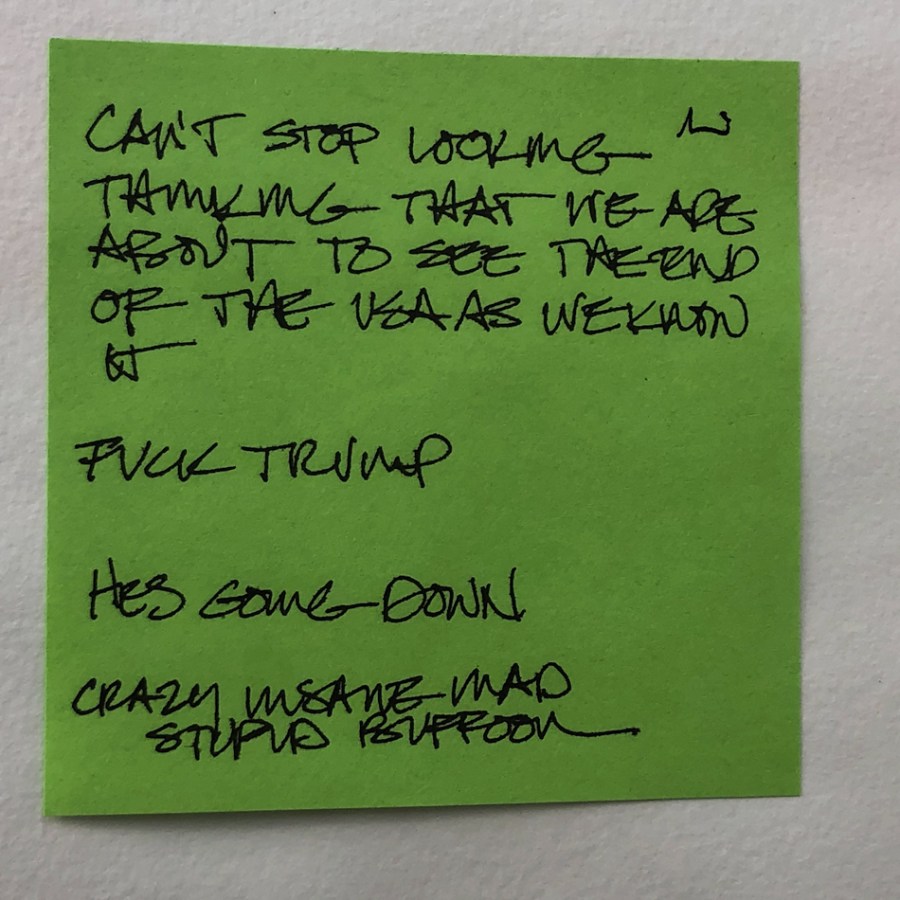 CAN'T STOP LOOKING
THINKING THAT WE ARE
ABOUT TO SEE THE END
OF THE USA AS WE KNOW
IT
FUCK TRUMP
HES GOING DOWN
CRAZY INSANE MAD
STUPID BUFFOON